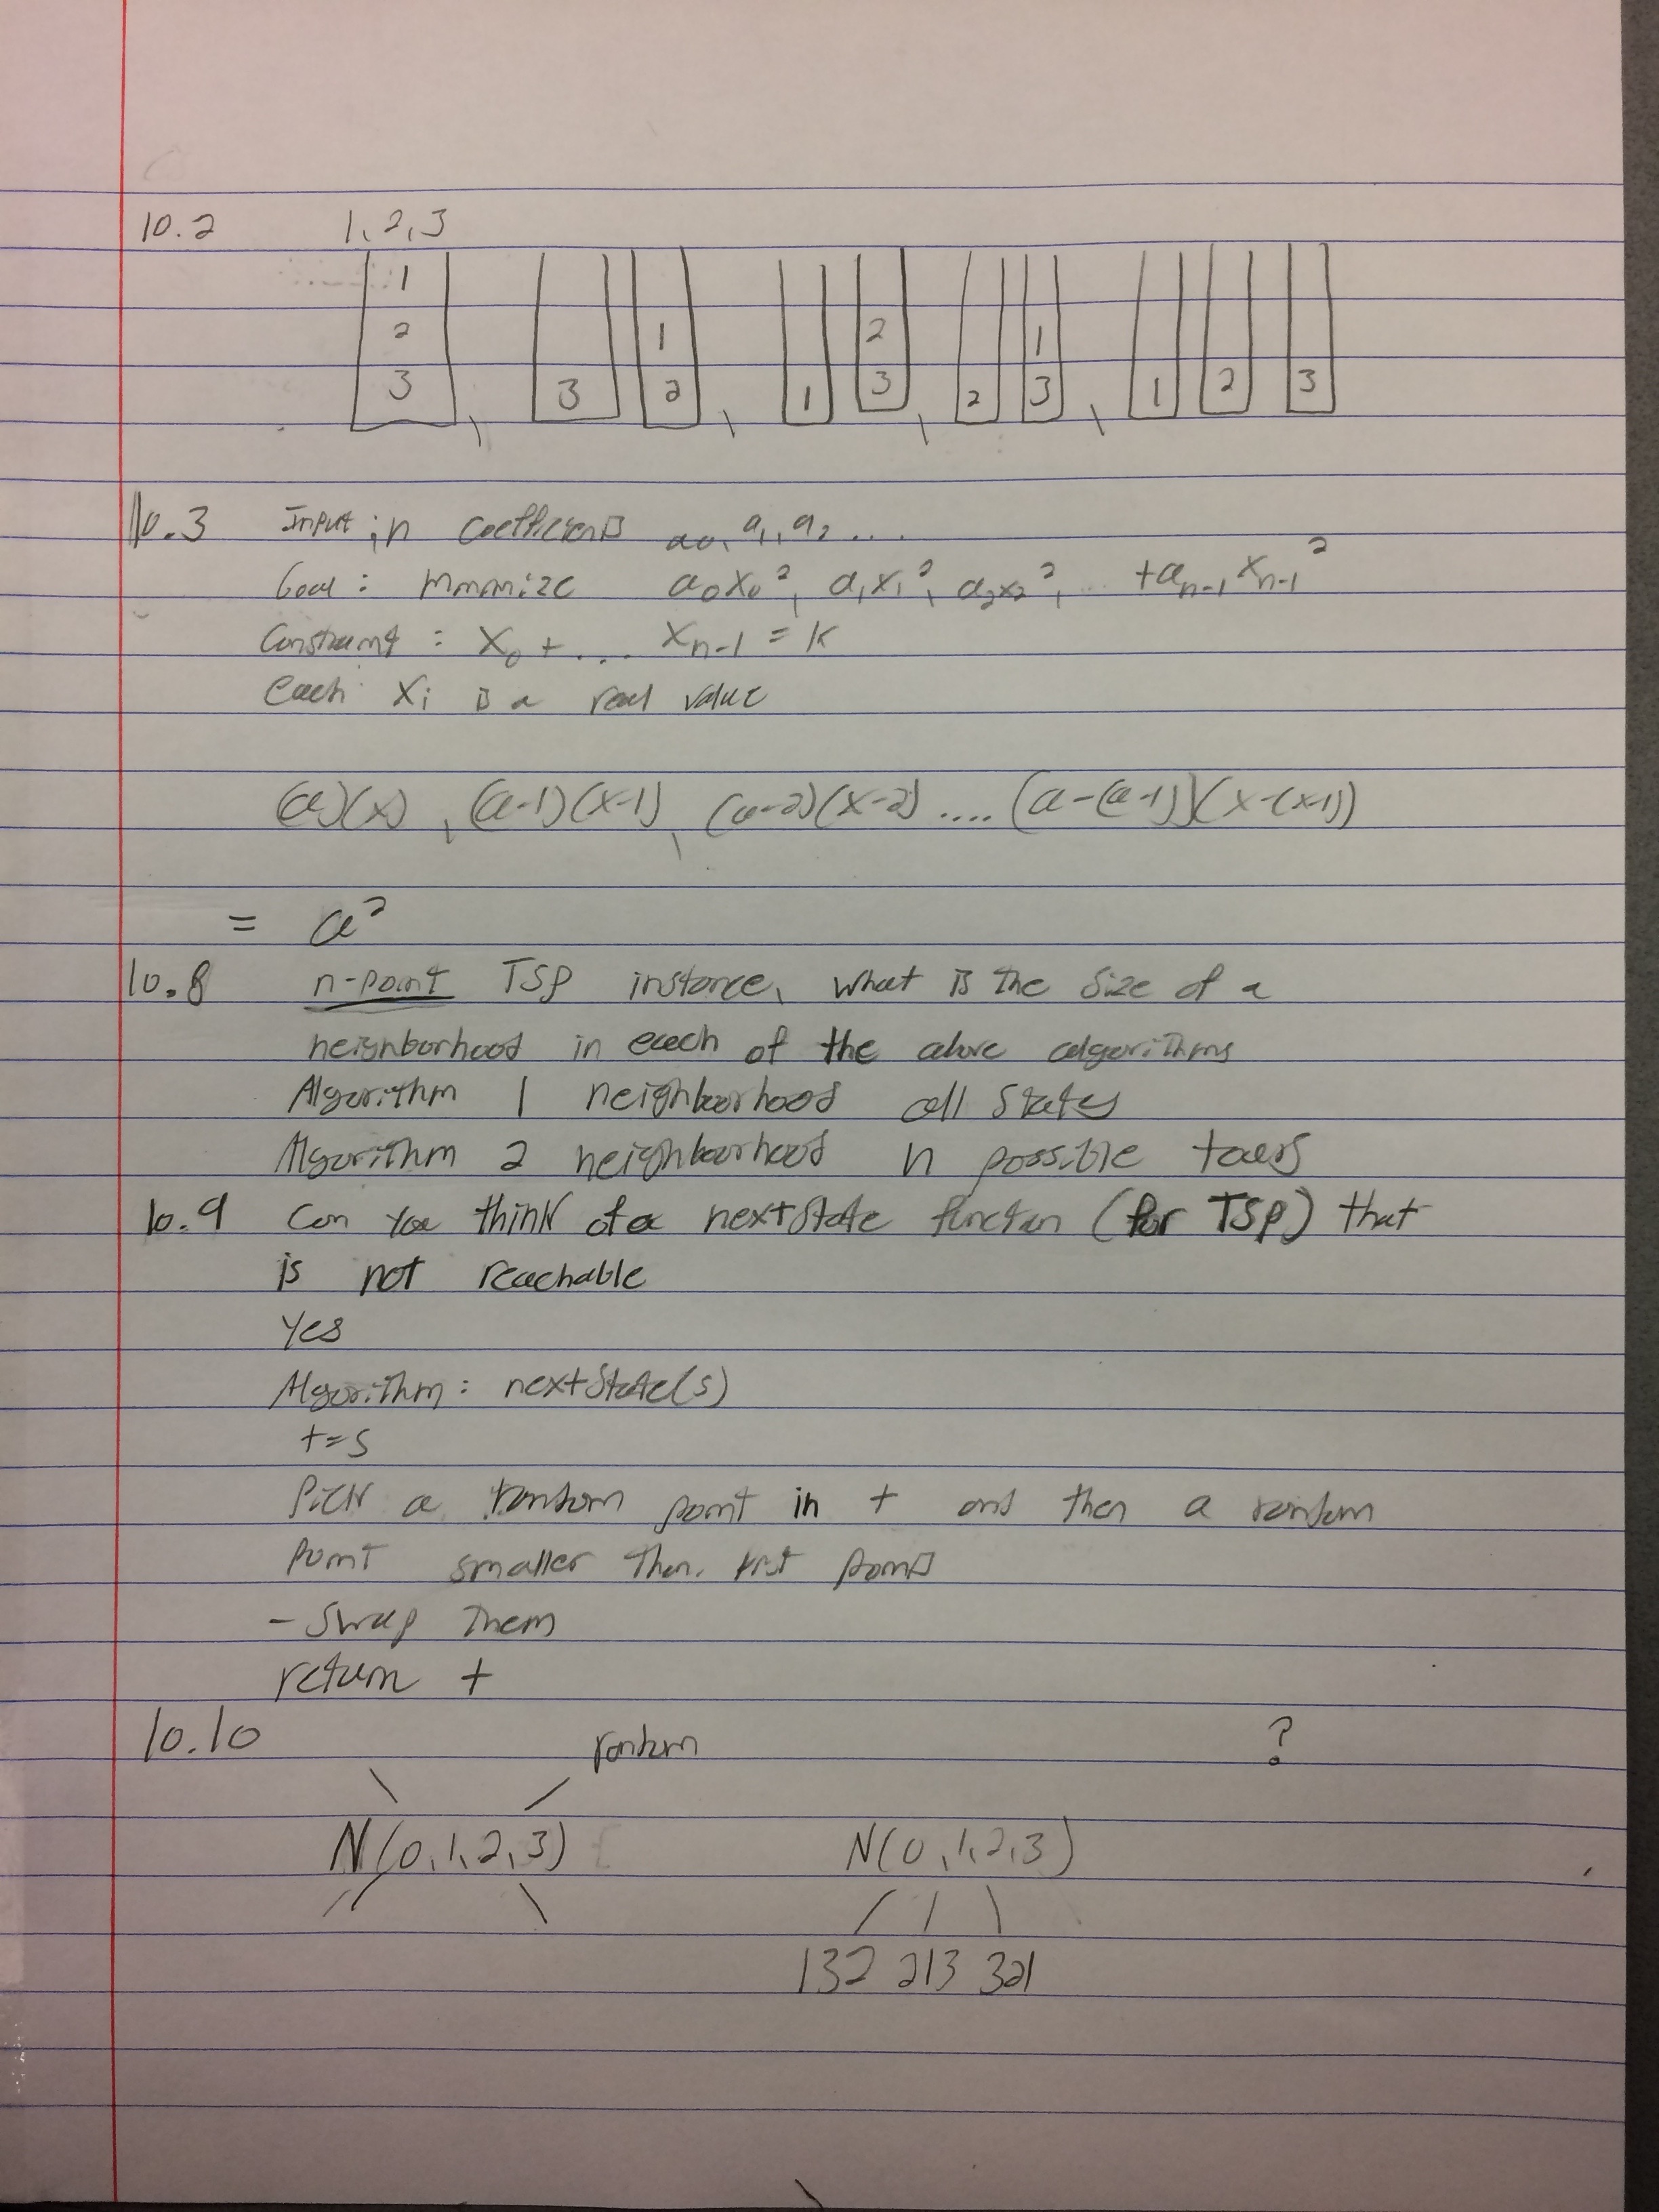 10.2 1, 2, 3
1 1 2 1
2 3 2 1 3 2 3 1 2 3
3
10.3 Input: n coefficients a0, a1, a2 ....
Goal: Minimize a0x0², a1x1², a2x2², ... + an-1 xn-1²
Constraint: x0 + ... xn-1 = k
Each xi is a real value
(a)(x), (a-1)(x-1), (a-2)(x-2) .... (a-(a-1))(x-(x-1))
= a²
10.8 n-point TSP instance, what is the size of a
neighborhood in each of the above algorithms
Algorithm 1 neighborhood all states
Algorithm 2 neighborhood n possible tours
10.9 Can you think of a nextState function (for TSP) that
is not reachable
Yes
Algorithm: nextState(s)
t=s
Pick a random point in t and then a random
point smaller then first point
- Swap them
return t
10.10 random ?
N(0,1,2,3) N(0,1,2,3)
132 213 321